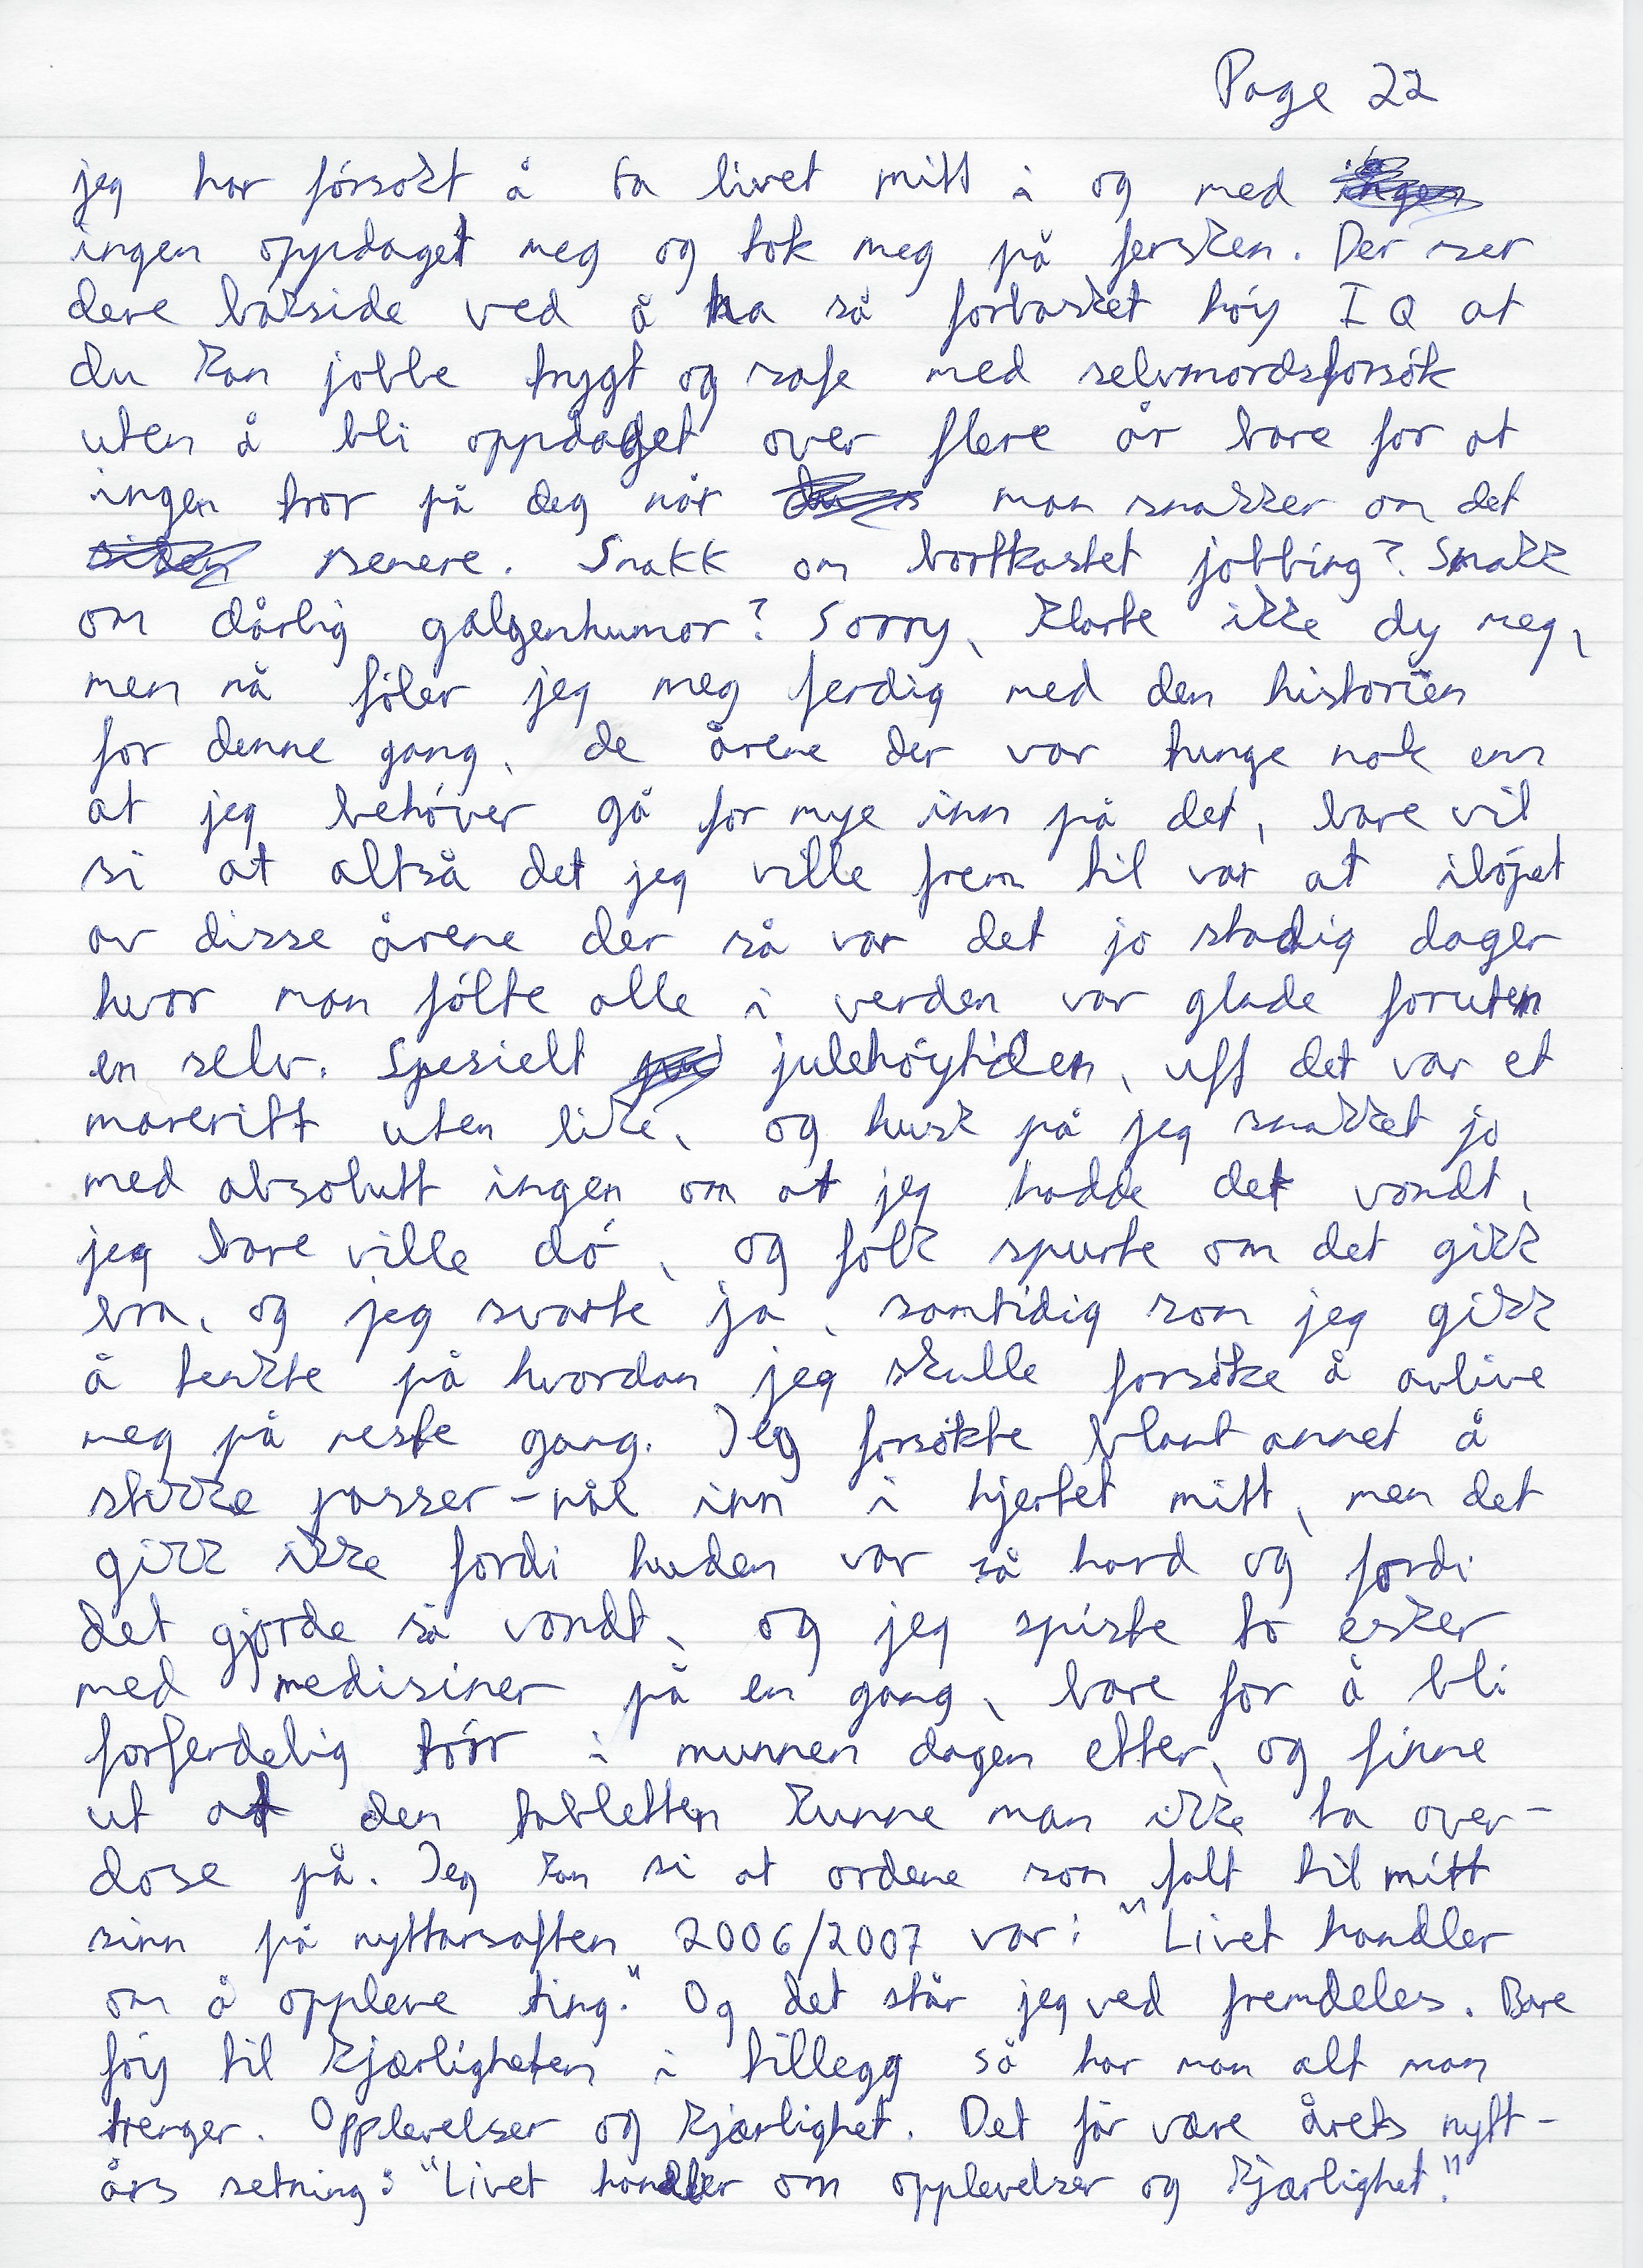 Page 22
jeg har försökt å ta livet mitt i og med
ingen oppdaget meg og tok meg på fersken. Der ser
dere bakside ved å ha så forbasket høy IQ at
du kan jobbe trygt og safe med selvmordsforsøk
uten å bli oppdaget over flere år bare for at
ingen tror på deg når man snakker om det
senere. Snakk om bortkastet jobbing? Snakk
om dårlig galgenhumor? Sorry, klarte ikke dy meg,
men nå føler jeg meg ferdig med den historien
for denne gang, de årene der var tunge nok enn
at jeg behøver gå for mye inn på det, bare vil
si at altså det jeg ville frem til var at iløpet
av disse årene der så var det jo stadig dager
hvor man følte alle i verden var glade foruten
en selv. Spesielt julehøytiden, uff det var et
mareritt uten like, og husk på jeg snakket jo
med absolutt ingen om at jeg hadde det vondt,
jeg bare ville dø, og folk spurte om det gikk
bra, og jeg svarte ja, samtidig som jeg gikk
å tenkte på hvordan jeg skulle forsøke å avlive
meg på neste gang. Jeg forsøkte blant annet å
stikke passer-nål inn i hjertet mitt, men det
gikk ikke fordi huden var så hard og fordi
det gjorde så vondt, og jeg spiste to esker
med medisiner på en gang, bare for å bli
forferdelig tørr i munnen dagen etter, og finne
ut at den tabletten kunne man ikke ta over-
dose på. Jeg kan si at ordene som falt til mitt
sinn på nyttarsaften 2006/2007 var: "Livet handler
om å oppleve ting." Og det står jeg ved fremdeles. Bare
føy til kjærligheten i tillegg så har man alt man
trenger. Opplevelser og kjærlighet. Det får være årets nytt-
års setning: "Livet handler om opplevelser og kjærlighet."